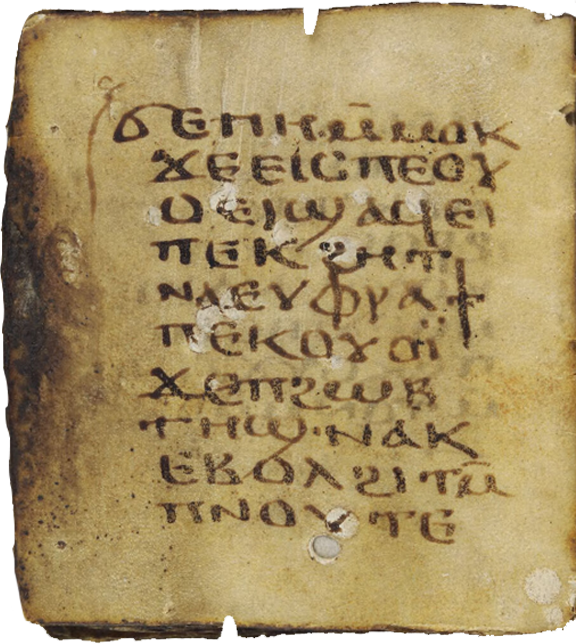 ϭⲉⲡⲏⲙ̄ⲙⲟⲕ
ϫⲉⲉⲓⲥⲡⲉⲟⲩ
ⲟⲉⲓϣⲁϥⲉⲓ
ⲡⲉⲕϩⲏⲧ
ⲛⲁⲉⲩⲫⲣⲁϯ
ⲡⲉⲕⲟⲩⲟⲓ̈
ϫⲉⲡϩⲱⲃ
ⲧⲏϣ·ⲛⲁⲕ
ⲉⲃⲟⲗϩⲓⲧⲙ̄
ⲡⲛⲟⲩⲧⲉ